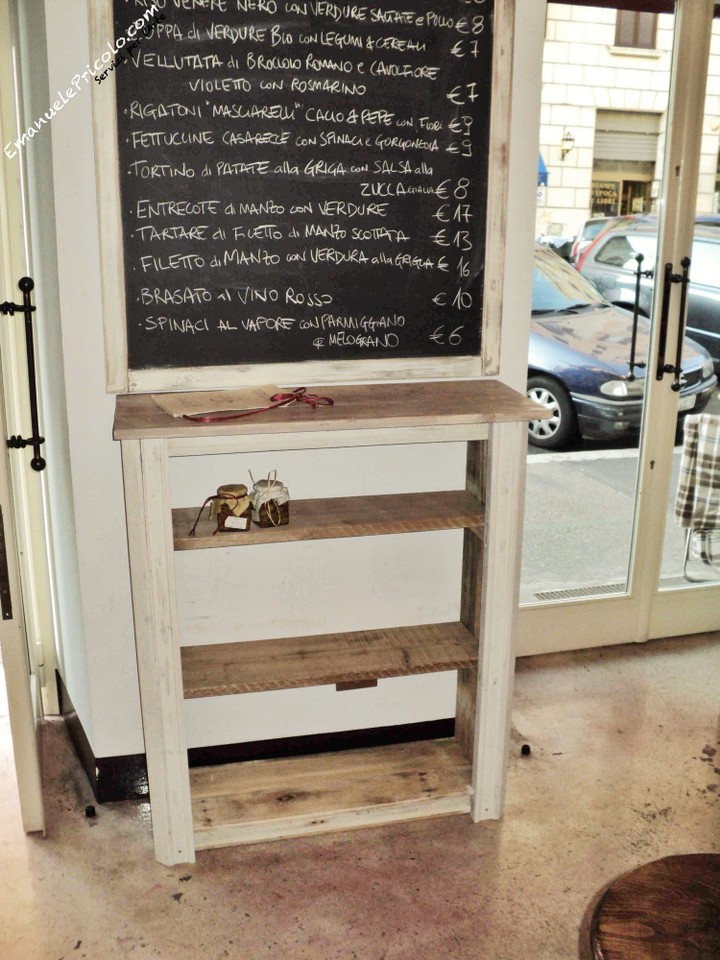 EmanuelePricolo.com
VENERE NERO con VERDURE SALTATE e POLLO €8
ZUPPA di VERDURE BIO con LEGUMI & CEREALI €7
·VELLUTATA di BROCCOLO ROMANO e CAVOLFIORE
VIOLETTO con ROSMARINO €7
·RIGATONI "MASCIARELLI" CACIO & PEPE con FIORI €9
·FETTUCCINE CASARECCE con SPINACI e GORGONZOLA €9
·TORTINO di PATATE alla GRIGLIA con SALSA alla
ZUCCA GIALLA €8
·ENTRECOTE di MANZO con VERDURE €17
·TARTARE di FILETTO di MANZO SCOTTATA €13
·FILETTO di MANZO con VERDURA alla GRIGLIA €16
·BRASATO al VINO ROSSO €10
·SPINACI AL VAPORE con PARMIGGIANO
& MELOGRANO €6